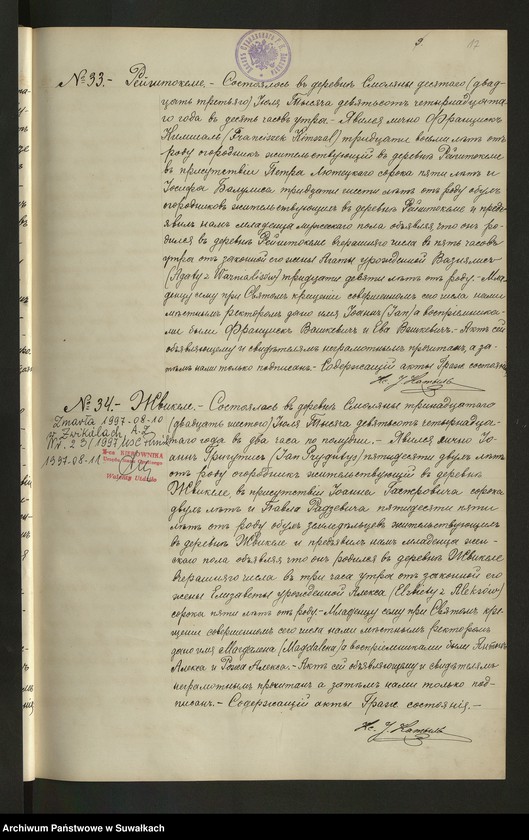 9.
№ 33.- Рейштокеме.- Состоялось въ деревнѣ Смоляны десятаго (двад-
цать третьяго) Іюля Тысяча девятьсотъ четырнадцата-
го года въ десять часовъ утра.- Явился лично Францискъ
(Franciszek) тридцати восьми лѣтъ отъ
роду огородникъ жительствующій въ деревнѣ Рейштокеме
въ присутствіи Петра сорока пяти лѣтъ и
Іосифа Балулиса тридцати шести лѣтъ отъ роду обухъ
огородниковъ жительствующихъ въ деревнѣ Рейштокеме и предъ-
явилъ намъ младенца мужескаго пола объявляя что онъ ро-
дился въ деревнѣ Рейштокеме вчерашняго числа въ пять часовъ
утра отъ законной его жены Агаты урожденной
(Agaty z) тридцати девяти лѣтъ отъ роду.- Мла-
денцу сему при Святомъ крещеніи совершенномъ сего числа нами
мѣстнымъ ректоромъ дано имя Іоаннъ (Jan) а воспріемника-
ми были Францискъ Вашкевичъ и Ева Вашкевичъ.- Актъ сей
объявляющему и свидѣтелямъ неграмотнымъ прочитанъ, а за-
тѣмъ нами только подписанъ.- Содержащій акты Гражд. состоянія
Кс. J.
№ 34.- Жвикеле.- Состоялось въ деревнѣ Смоляны тринадцатаго
(двадцать шестого) Іюля Тысяча девятьсотъ четырнадца-
таго года въ два часа по полудни.- Явился лично Іо-
аннъ (Jan) пятидесяти двухъ лѣтъ
отъ роду огородникъ жительствующій въ деревнѣ
Жвикеле, въ присутствіи Іоанна сорока
двухъ лѣтъ и Павла Радзевича пятидесяти пяти
лѣтъ отъ роду обухъ земледѣльцевъ жительствующихъ
въ деревнѣ Жвикеле и предъявилъ намъ младенца жен-
скаго пола объявляя что онъ родился въ деревнѣ Жвикеле
вчерашняго числа въ три часа утра отъ законной его
жены Елизаветы урожденной Алекса (Elżbiety z Aleksów)
сорока пяти лѣтъ отъ роду.- Младенцу сему при Святомъ кре-
щеніи совершенномъ сего числа нами мѣстнымъ Ректоромъ
дано имя Магдалена (Magdalena) а воспріемниками были Антонъ
Алекса и Роза Алекса.- Актъ сей объявляющему и свидѣтелямъ
неграмотнымъ прочитанъ а затѣмъ нами только под-
писанъ.- Содержащій акты Гражд. состоянія.-
Кс. J.
Zmarła 1997-08-10
w Żwikielach
1997
1997-08-11
KIEROWNIKA
Archiwum Państwowe w Suwałkach